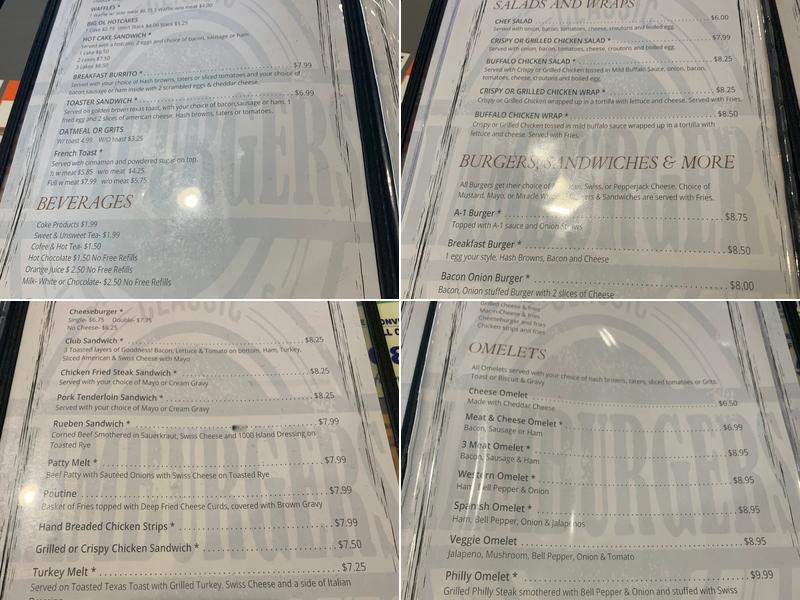 WAFFLES *
BIG OL HOTCAKES
HOT CAKE SANDWICH *
Served with a hotcake, 2 eggs and choice of bacon, sausage or ham.
1 cake $6.50
2 cakes $7.50
3 cakes $8.50
BREAKFAST BURRITO * $7.99
Served with your choice of Hash browns, taters or sliced tomatoes and your choice of
bacon,sausage or ham inside with 2 scrambled eggs & cheddar cheese.
TOASTER SANDWICH * $6.99
Served on golden brown texas toast, with your choice of bacon,sausage or ham. 1
fried egg and 2 slices of american cheese. Hash browns, taters or tomatoes.
OATMEAL OR GRITS
W/ toast 4.99 W/O toast $3.25
French Toast *
Served with cinnamon and powdered sugar on top.
½ w meat $5.85 w/o meat $4.25
Full w meat $7.99 w/o meat $5.75
BEVERAGES
Coke Products $1.99
Sweet & Unsweet Tea- $1.99
Cofee & Hot Tea- $1.50
Hot Chocolate $1.50 No Free Refills
Orange Juice $ 2.50 No Free Refills
Milk- White or Chocolate- $2.50 No Free Refills
SALADS AND WRAPS
CHEF SALAD $6.00
Served with onion, bacon, tomatoes, cheese, croutons and boiled egg.
CRISPY OR GRILLED CHICKEN SALAD * $7.99
Served with onion, bacon, tomatoes, cheese, croutons and boiled egg.
BUFFALO CHICKEN SALAD * $8.25
Served with Crispy or Grilled Chicken tossed in Mild Buffalo Sauce, onion, bacon,
tomatoes, cheese, croutons and boiled egg.
CRISPY OR GRILLED CHICKEN WRAP * $8.25
Crispy or Grilled Chicken wrapped up in a tortilla with lettuce and cheese. Served with Fries.
BUFFALO CHICKEN WRAP * $8.50
Crispy or Grilled Chicken tossed in mild buffalo sauce wrapped up in a tortilla with
lettuce and cheese. Served with Fries.
BURGERS, SANDWICHES & MORE
All Burgers get their choice of American, Swiss, or Pepperjack Cheese. Choice of
Mustard, Mayo, or Miracle & Sandwiches are served with Fries.
A-1 Burger * $8.75
Topped with A-1 sauce and Onion Straws
Breakfast Burger * $8.50
1 egg your style, Hash Browns, Bacon and Cheese
Bacon Onion Burger * $8.00
Bacon, Onion stuffed Burger with 2 slices of Cheese
Cheeseburger *
Single- $6.75 Double- $7.75
No Cheese- $6.25
Club Sandwich * $8.25
3 Toasted layers of Goodness! Bacon, Lettuce & Tomato on bottom, Ham, Turkey,
Sliced American & Swiss Cheese with Mayo
Chicken Fried Steak Sandwich * $8.25
Served with your choice of Mayo or Cream Gravy
Pork Tenderloin Sandwich * $8.25
Served with your choice of Mayo or Cream Gravy
Rueben Sandwich * $7.99
Corned Beef Smothered in Sauerkraut, Swiss Cheese and 1000 Island Dressing on
Toasted Rye
Patty Melt * $7.99
Beef Patty with Sautéed Onions with Swiss Cheese on Toasted Rye
Poutine $7.99
Basket of Fries topped with Deep Fried Cheese Curds, covered with Brown Gravy
Hand Breaded Chicken Strips * $7.99
Grilled or Crispy Chicken Sandwich * $7.50
Turkey Melt * $7.25
Served on Toasted Texas Toast with Grilled Turkey, Swiss Cheese and a side of Italian
Cheeseburger and fries
Chicken strips and fries
OMELETS
All Omelets served with your choice of hash browns, taters, sliced tomatoes or Grits.
Toast or Biscuit & Gravy
Cheese Omelet $6.50
Made with Cheddar Cheese
Meat & Cheese Omelet * $6.99
Bacon, Sausage or Ham
3 Meat Omelet * $8.95
Bacon, Sausage & Ham
Western Omelet * $8.95
Ham, Bell Pepper & Onion
Spanish Omelet * $8.95
Ham, Bell Pepper, Onion & Jalapenos
Veggie Omelet $8.95
Jalapeno, Mushroom, Bell Pepper, Onion & Tomato
Philly Omelet * $9.99
Grilled Philly Steak smothered with Bell Pepper & Onion and stuffed with Swiss